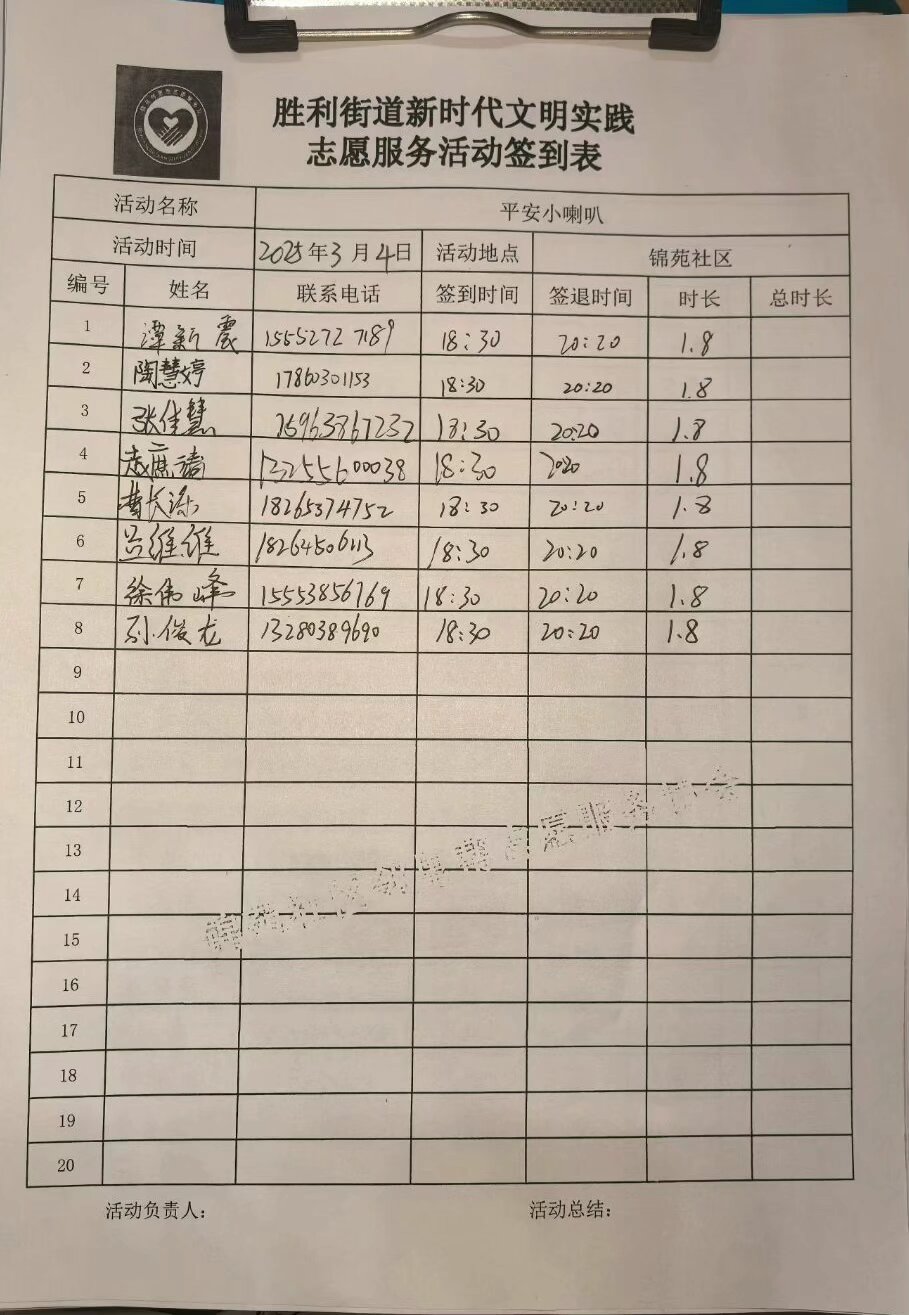 胜利街道新时代文明实践
志愿服务活动签到表
活动名称 平安小喇叭
活动时间 2025年3月4日 活动地点 锦苑社区
编号 姓名 联系电话 签到时间 签退时间 时长 总时长
1 潭新震 15552727189 18:30 20:20 1.8
2 陶慧婷 17860301153 18:30 20:20 1.8
3 张佳慧 15963867232 18:30 20:20 1.8
4 13255600038 18:30 2020 1.8
5 18265374752 18:30 20:20 1.8
6 吕维维 18264506113 18:30 20:20 1.8
7 徐伟峰 15553856769 18:30 20:20 1.8
8 孙俊龙 13280389690 18:30 20:20 1.8
9
10
11
12
13
14
15
16
17
18
19
20
活动负责人: 活动总结: